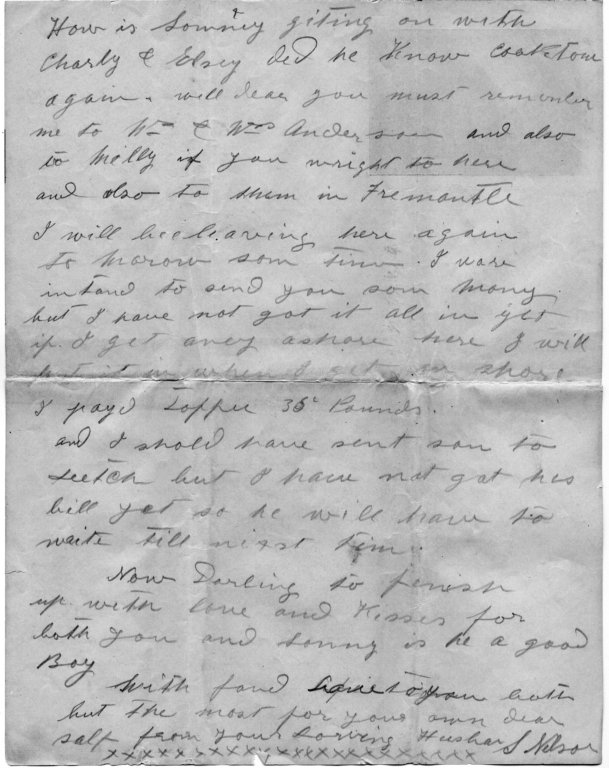 How is Sonney giting on with
Charly & Elsey ded he Know Cooktown
again. will dear you must remember
me to Wm & Wms Anderson and also
to Melly if you wright to here
and also to them in Fremantle
I will beeleaving here again
to morow som time. I ware
intand to send you som mony
but I have not got it all in yet
if I get aney ashore here I will
put it in when I get on shore
I payd Topper 35£ Pounds.
and I shold have sent som to
Leetch but I have not got his
bill yet so he will have to
waite till nixt tim.
Now Darling to finish
up with love and Kisses for
both you and Sonny is he a good
Boy
With fond love to you both
but the most for your own dear
salf from your loving Husban S Nelson
xxxxxxxxxxxxxxxxxxxxxxxxxx